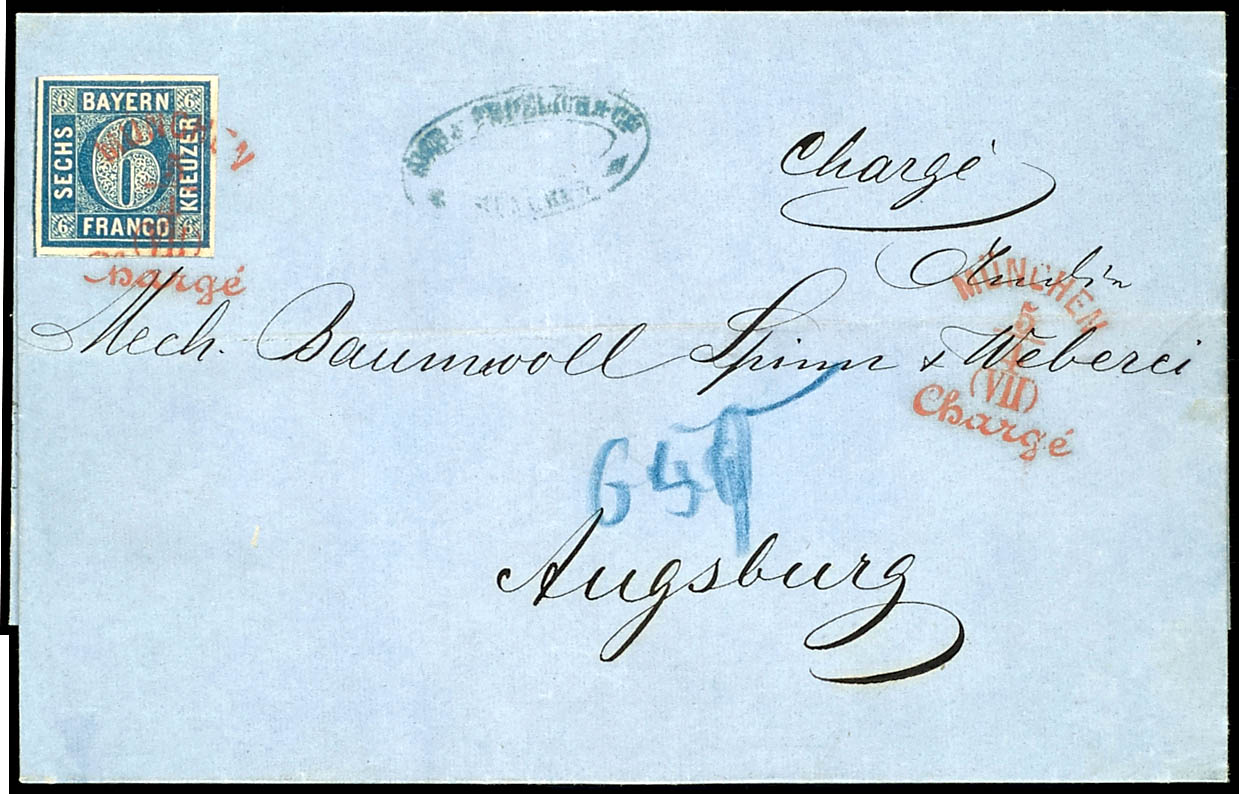 6 BAYERN 6
SECHS 6 KREUZER
6 FRANCO 6
MÜNCHEN
(VII)
Chargé
Chargé
MÜNCHEN
5
4
(VII)
Chargé
Mech. Baumwoll Spinn & Weberei
Augsburg